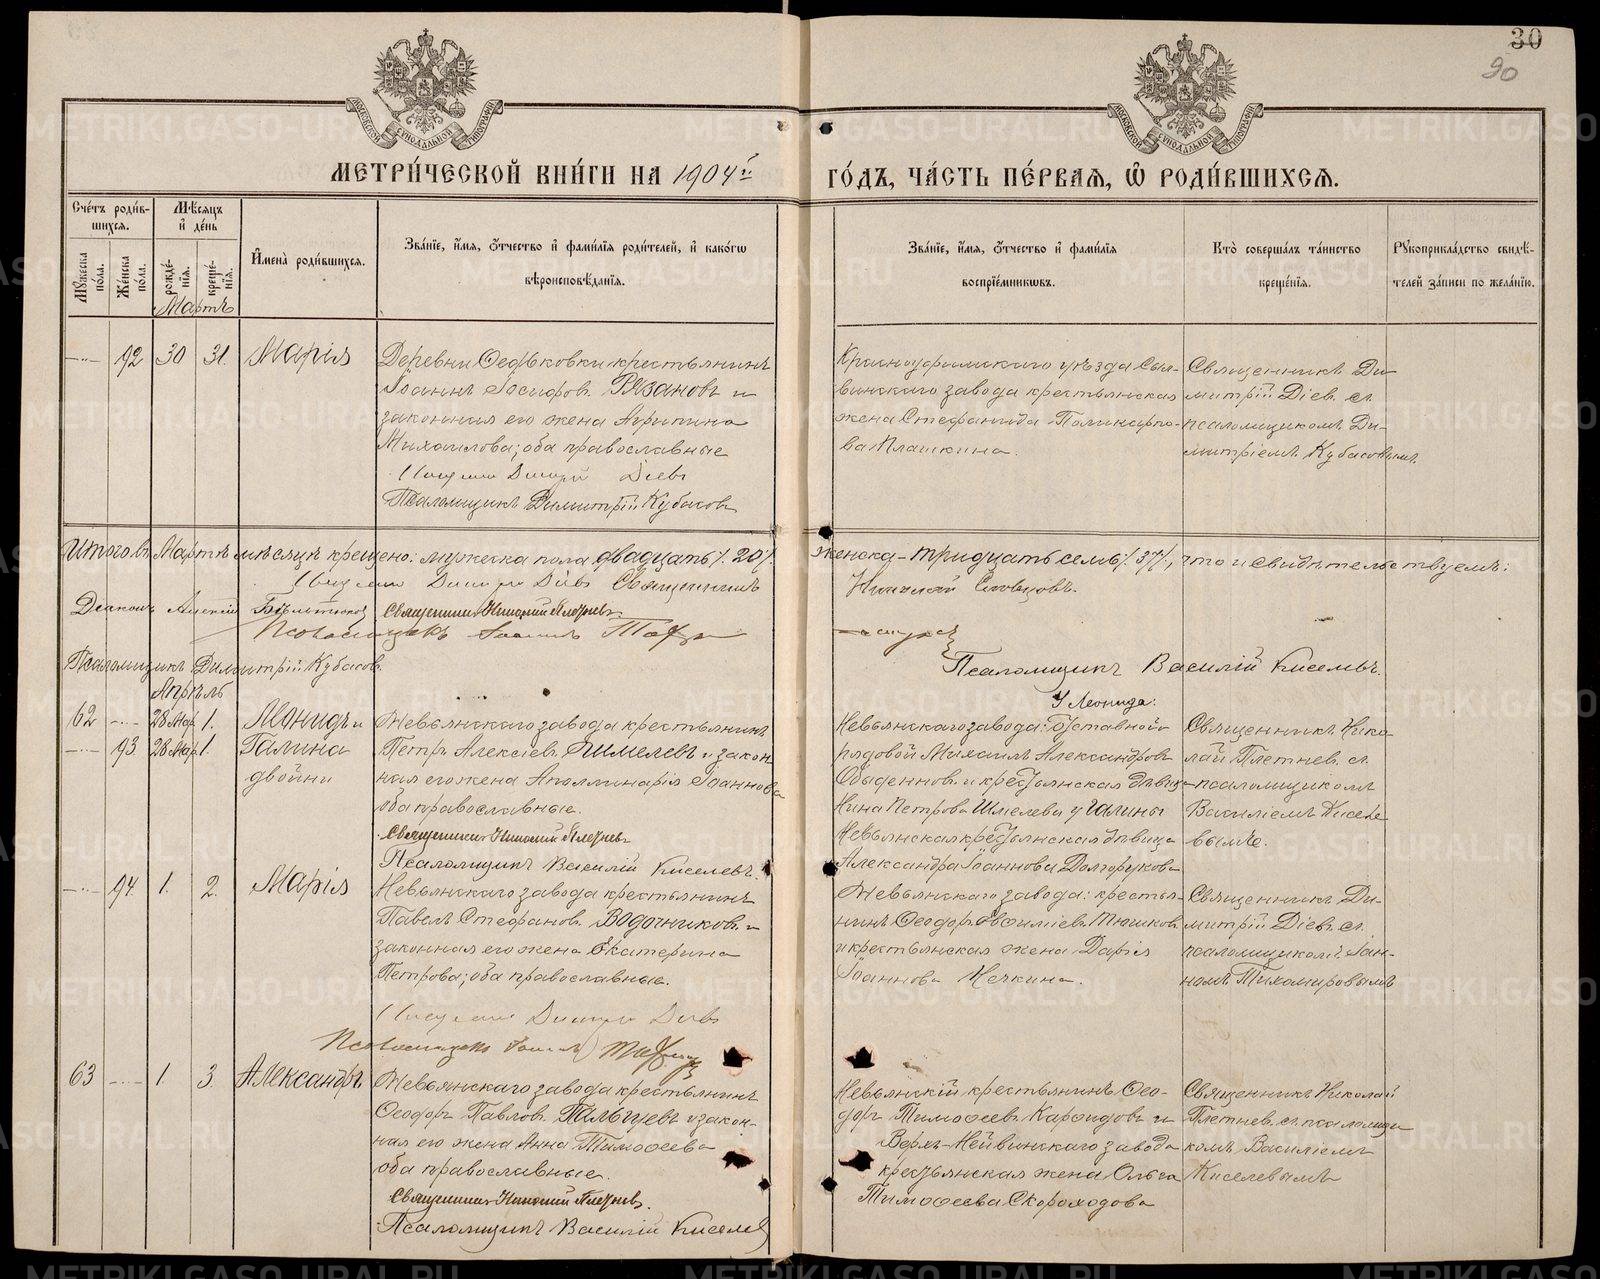 30
90
МОСКОВСКОЙ СѴНОДАЛЬНОЙ ТИПОГРАФІИ
МОСКОВСКОЙ СѴНОДАЛЬНОЙ ТИПОГРАФІИ
МЕТРИ́ЧЕСКОЙ КНИ́ГИ НА 1904й ГО́ДЪ, ЧА́СТЬ ПЕ́РВАѦ, Ѡ РОДИ́ВШИХСѦ.
Сче́тъ роди́в-
шихсѧ.
Му́жеска по́ла.
Же́нска по́ла.
Мѣ́сѧцъ
и҆ де́нь
рожде́-
нїѧ.
креще́-
нїѧ.
И҆мена̀ роди́вшихсѧ.
Зва́нїе, и҆́мѧ, ѻ҆́тчество и҆ фами́лїѧ роди́телей, и҆ како́гѡ
вѣроисповѣ́данїѧ.
Зва́нїе, и҆́мѧ, ѻ҆́тчество и҆ фами́лїѧ
воспрїе́мникѡвъ.
Кто̀ соверша́лъ та́инство
креще́нїѧ.
Рꙋкоприкла́дство свидѣ́-
телей за́писи по жела́нїю.
Мартъ
92 30 31. Марія
Деревни Ѳедьковки крестьянинъ
Іоаннъ Іосифов. Рязановъ и
законная его жена Агрипина
Михаилова; оба православные
Димитрій Діевъ
Псаломщикъ Димитрій Кубасовъ
Красноуфимскаго уѣзда Сыл-
винскаго завода крестьянская
жена Стефанида Поликарпо-
ва Плашкина.
Священникъ Ди-
митрій Діев. съ
псаломщикомъ Ди-
митріемъ Кубасовымъ.
Итого въ Мартѣ мѣсяцѣ крещено: мужеска пола двадцать /. 20 /. женска - тридцать семь /. 37 /., что и свидѣтельствуемъ:
Священникъ
Николай Словцовъ.
Діаконъ Алексій
Священникъ Николай Плетнев
Псаломщикъ Іоаннъ
Псаломщикъ Димитрій Кубасов.
Псаломщикъ Василій Киселевъ.
Апрѣль
62 28 Мар 1. Леонидъ и
93 28 Мар 1. Галина
двойни
Невьянскаго завода крестьянинъ
Петръ Алексіевъ Шмелевъ и закон-
ная его жена Аполлинарія Іоаннова
оба православные.
Священник Николай Плетнев
Псаломщикъ Василій Киселевъ.
У Леонида:
Невьянскаго завода: отставной
рядовой Михаилъ Александровъ
и крестьянская дѣвица
Нина Петрова Шмелева у Галины
Невьянская крестьянская дѣвица
Александра Іоаннова Долгорукова
Священникъ Нико-
лай Плетнев. съ
псаломщикомъ
Василіемъ Киселе-
вымъ.
94 1. 2. Марія
Невьянскаго завода крестьянинъ
Павелъ Стефанов. Водочников. и
законная его жена Екатерина
Петрова; оба православные.
Димитрій Діевъ
Псаломщикъ Іоаннъ
Невьянскаго завода: крестья-
нинъ Ѳеодор. Василіев. Тюшков.
и крестьянская жена Дарія
Іоаннова Нечкина.
Священникъ Ди-
митрій Діев. съ
псаломщиком. Іоан-
номъ Тихомировымъ
63 1. 3. Александръ
Невьянскаго завода крестьянинъ
Ѳеодоръ Павлов. Пальцевъ и закон-
ная его жена Анна Тимоѳеева
оба православные.
Священник Николай Плетнев.
Псаломщикъ Василій Киселев
Невьянскій крестьянинъ Ѳео-
доръ Тимоѳеев. Карфидовъ и
Верхъ-Нейвинскаго завода
крестьянская жена Ольга
Тимоѳеева Скороходова
Священникъ Николай
Плетнев. съ псаломщи-
комъ Василіемъ
Киселевымъ
METRIKI.GASO-URAL.RU